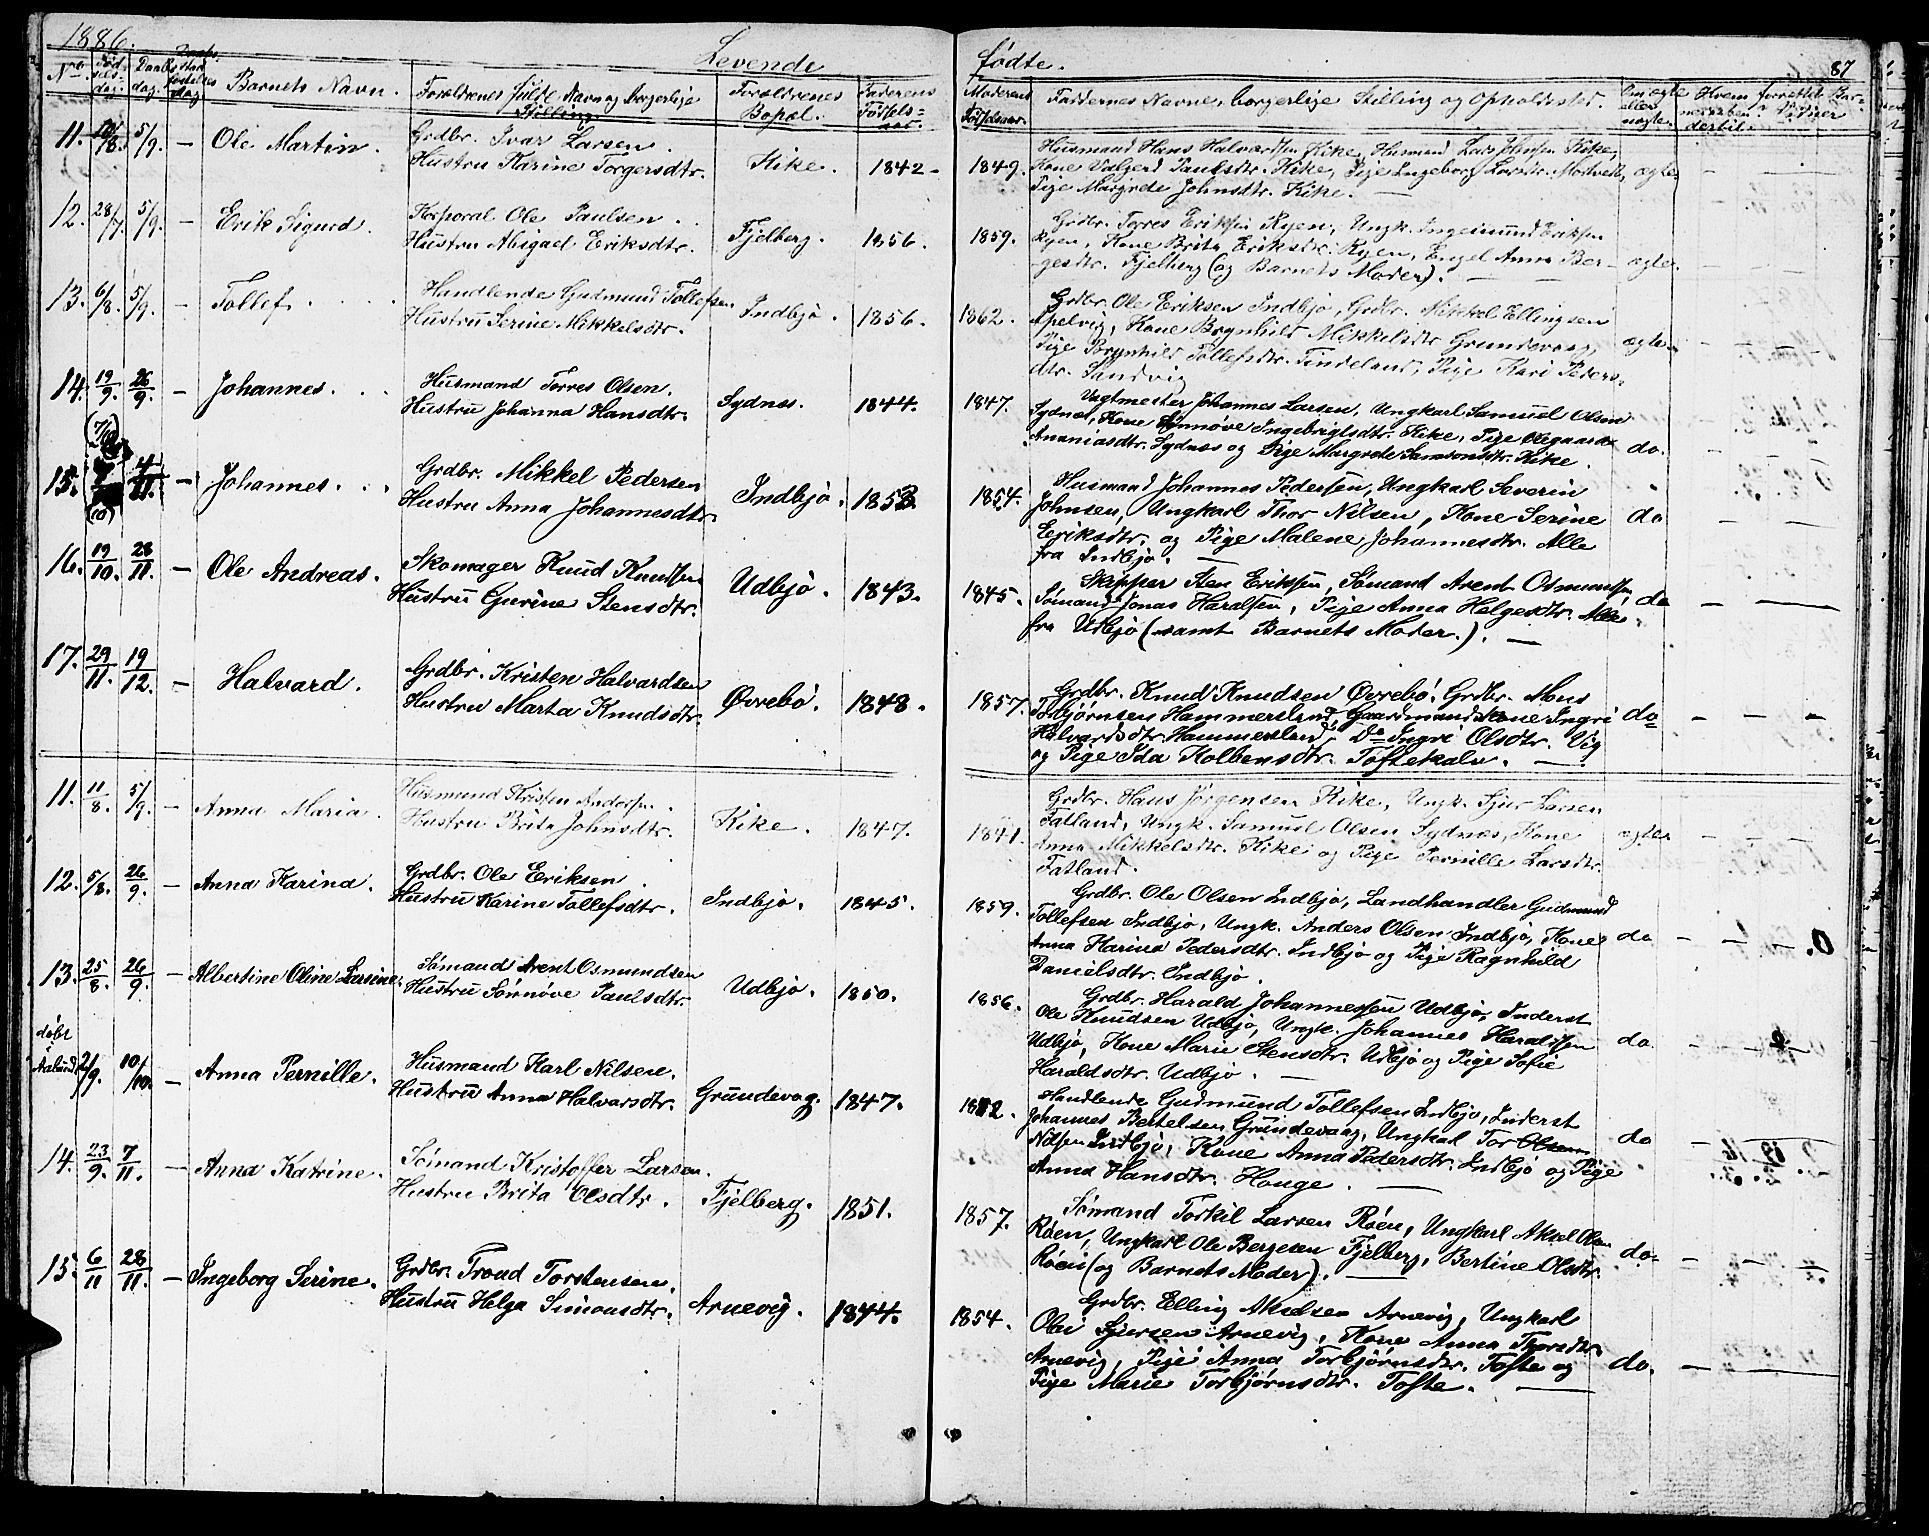 1886.
Levende fødte.
87
No. Fødselsdag. Daabsdag. Barnets Navn. Forældrenes fulde Navn og borgerlige Stilling. Forældrenes Bopæl. Faderens Fødselsaar. Moderens Fødselsaar. Faddernes Navne, borgerlige Stilling og Opholdssted. Om ægte eller uægte.
11. 5/9. — Ole Martin. Grdbr. Ivar Larsen. Kike. 1842 - 1849. Husmand Hans Halvardsen Kike, Husmand Lars Johnsen Kike,
Hustru Karine Torgersdtr. Kone Valgerd Paulsdtr. Kike, Pige Ingeborg Larsdtr. ægte
Pige Margrete Johnsdtr. Kike. —
12. 28/7. 5/9. — Erik Sigurd. Korporal Ole Paulsen. Fjelberg. 1856. 1859. Grdbr. Torres Eriksen Ryen, Ungk. Ingemund Eriksen
Hustru Abigael Eriksdtr. Ryen, Kone Brita Eriksdtr. Ryen, Engel Anna Ber-
gesdtr. Fjelberg (og Barnets Moder). — ægte.
13. 6/8. 5/9. — Tollef. Handlende Gudmund Tollefsen Indbjo. 1856. 1862. Grdbr. Ole Eriksen Indbjo, Grdbr. Mikkel Ellingsen
Hustru Serine Mikkelsdtr. Apelvig, Kone Brynhild Mikkelsdtr Grundevaag, ægte
Pige Brynhild Tollefsdtr. Tindeland, Pige Kari Peders-
dtr. Sandvig
14. 19/9. 26/9. — Johannes. Husmand Torres Olsen. Sydnes. 1844. 1847. Vagtmester Johannes Larsen, Ungkarl Samuel Olsen
Hustru Johanna Hansdtr. Sydnes, Kone Sønnøve Ingebrigtsdtr. Kike, Pige
Ananiasdtr. Sydnæs og Pige Margrete Samsonsdtr. Kike. do.
15. 4/11. — Johannes. Grdbr. Mikkel Pedersen Indbjo. 1853. 1854. Husmand Johannes Pedersen, Ungkarl Severin
Hustru Anna Johannesdtr. Johnsen, Ungkarl Thor Nilsen, Kone Serine do
Eriksdtr. og Pige Malene Johannesdtr. Alle
fra Indbjo. —
16. 19/10. 28/11. — Ole Andreas. Skomager Knud Knudsen Udbjo. 1843. 1845. Skipper Sten Eriksen, Sømand Arent Osmundsen,
Hustru Gurine Stensdtr. Sømand Jonas Haralsen, Pige Anna Helgesdtr. Alle do
fra Udbjo (samt Barnets Moder.). —
17. 29/11. 19/12. — Halvard. Grdbr. Kristen Halvardsen Øvrebø. 1848. 1857. Grdbr. Knud Knudsen Øvrebø. Grdbr. Mons
Hustru Marta Knudsdtr. Torbjørnsen Hammersland, Gaardmandskone Ingri do
Halvardsdtr. Hammersland, Do Ingri Olsdtr. Vig
og Pige Ida Kolbensdtr. Toftekalv. —
11. 11/8. 5/9. — Anna Maria. Husmand Kristen Andersen. Kike. 1847. 1841. Grdbr. Hans Jørgensen Kike, Ungk. Sjur Larsen
Hustru Brita Johnsdtr. Fatland, Ungk. Samuel Olsen Sydnæs, Kone ægte
Anna Mikkelsdtr. Kike og Pige Pernille Larsdtr.
Fatland.
12. 5/8. 26/9. — Anna Karina. Grdbr. Ole Eriksen. Indbjo. 1845. 1859. Grdbr. Ole Olsen Indbjo, Landhandler Gudmund
Hustru Karine Tollefsdtr. Tollefsen Indbjo, Ungk. Anders Olsen Indbjo, Kone do
Anna Karina Pedersdtr. Indbjo og Pige Ragnhild
Danielsdtr. Indbjo.
13. 25/8. 26/9. — Albertine Oline Larsine. Sømand Arent Osmundsen Udbjo. 1850. 1856. Grdbr. Harald Johannessen Udbjo, Inderst
Hustru Sønnøve Paulsdtr. Ole Knudsen Udbjo, Ungk. Johannes Haraldsen
Udbjo, Kone Marie Stensdtr. Udbjo og Pige Sofie do.
Haraldsdtr. Udbjo. —
døbt i 2/9. 10/10. — Anna Pernille. Husmand Karl Nilsen. Grundevag. 1847. Handlende Gudmund Tollefsen Indbjo, Inderst
Hustru Anna Halvarsdtr. Johannes Bertelsen Grundevaag, Ungkarl Tor Olsen do
Nilsen Indbjo, Kone Anna Pedersdtr. Indbjo og Pige
Anna Hansdtr. Houge. —
14. 23/9. 7/11. — Anna Katrine. Sømand Kristoffer Larsen. Fjelberg. 1851. 1857. Sømand Torkil Larsen Røen, Ungkarl Aksel Olsen
Hustru Brita Olsdtr. Røen, Ungkarl Ole Bergesen Fjelberg, Bertine Olsdtr. do
Røen (og Barnets Moder). —
15. 6/11 28/11. — Ingeborg Serine. Grdbr. Trond Torstensen. Arnevig. 1844. 1854. Grdbr. Elling Akselsen Arnevig, Ungkarl
Hustru Helga Simonsdtr. Olai Sjursen Arnevig, Kone Anna Thorsdtr.
Arnevig, Pige Anna Torbjørnsdtr. Tofte og do.
Pige Marie Torbjørnsdtr. Tofte. —